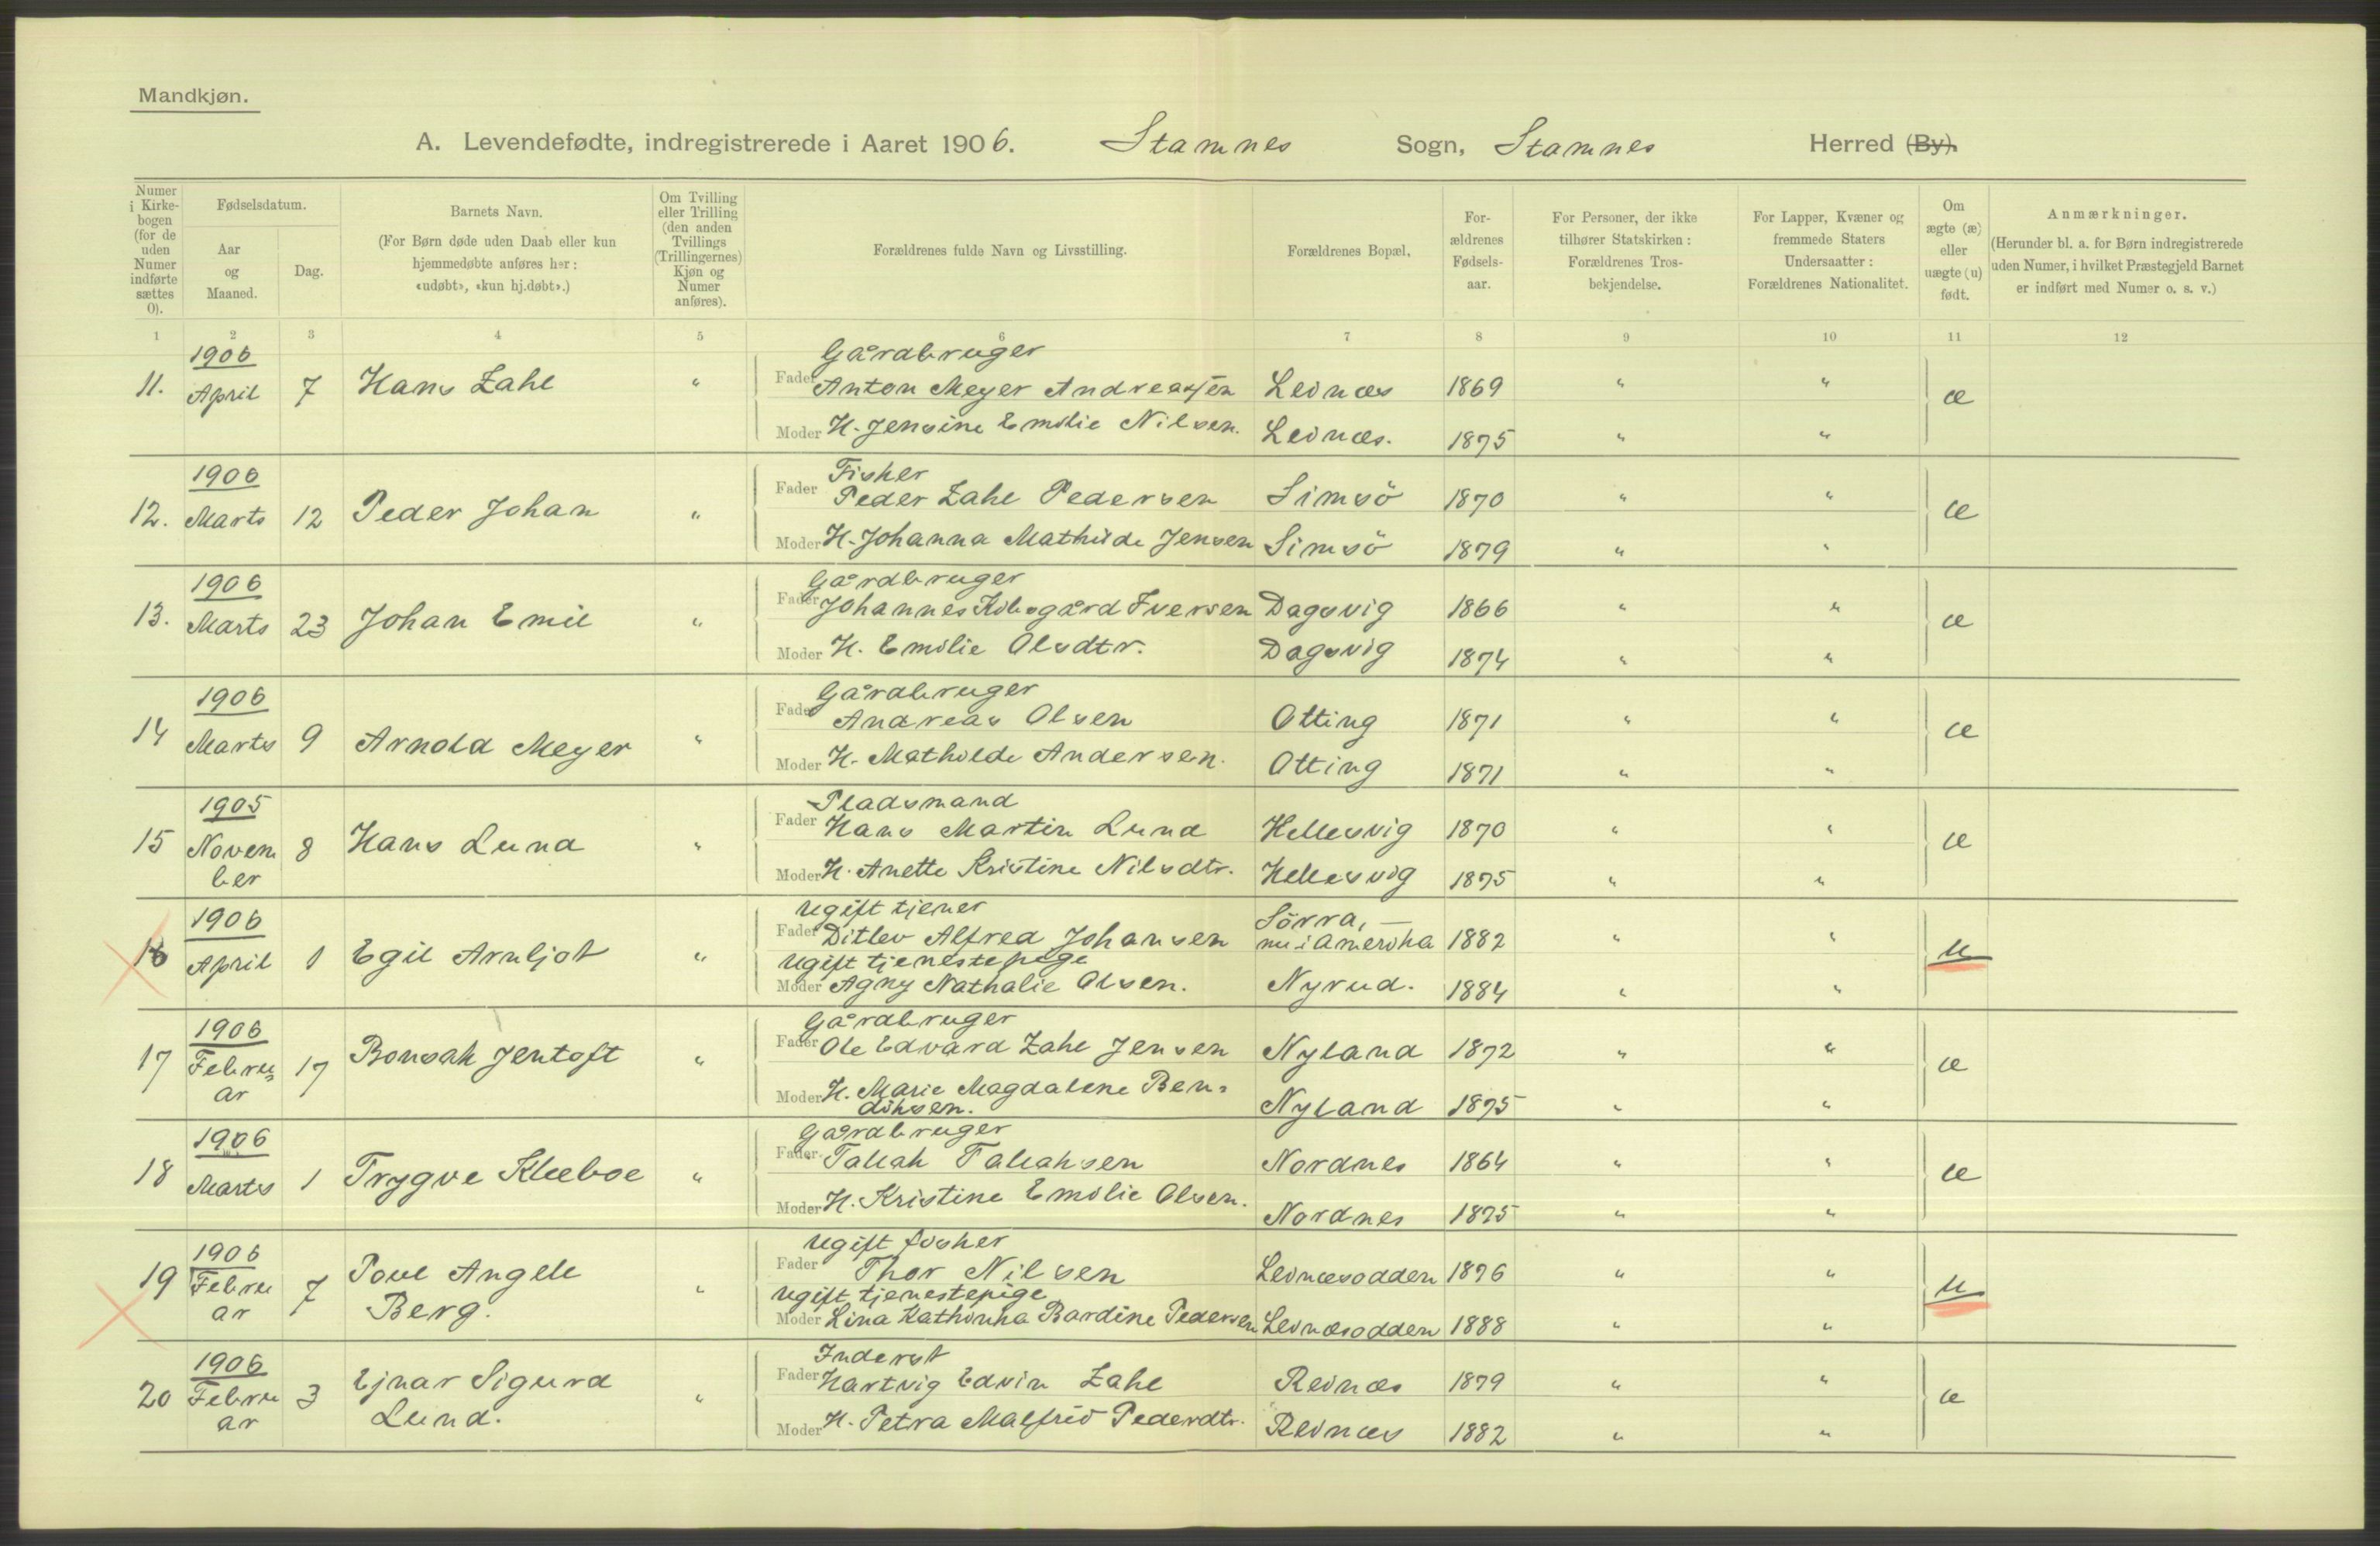 Mandkjøn.
A. Levendefødte, indregistrerede i Aaret 1906. Stamnes Sogn, Stamnes Herred (By).
Numer i Kirkebogen (for de uden Numer indførte sættes 0).
Fødselsdatum.
Aar og Maaned.
Dag.
Barnets Navn.
(For Børn døde uden Daab eller kun hjemmedøbte anføres her: «udøbt», «kun hj.døbt».)
Om Tvilling eller Trilling (den anden Tvillings (Trillingernes) Kjøn og Numer anføres).
Forældrenes fulde Navn og Livsstilling.
Forældrenes Bopæl.
Forældrenes Fødselsaar.
For Personer, der ikke tilhører Statskirken: Forældrenes Trosbekjendelse.
For Lapper, Kvæner og fremmede Staters Undersaatter: Forældrenes Nationalitet.
Om ægte (æ) eller uægte (u) født.
Anmærkninger.
(Herunder bl. a. for Børn indregistrerede uden Numer, i hvilket Præstegjeld Barnet er indført med Numer o. s. v.)
1 2 3 4 5 6 7 8 9 10 11 12
1906 Gårdbruger
11. April 7 Hans Zahl " Fader Anton Meyer Andreassen Leinæs 1869 " " æ
Moder H. Jensine Emilie Nilsen. Leinæs. 1875 " "
1906 Fisker
12. Marts 12 Peder Johan " Fader Peder Zahl Pedersen Simsö 1870 " " æ
Moder H. Johanna Mathilde Jensen Simsö 1879 " "
1906 Gårdbruger
13. Marts 23 Johan Emil " Fader Johannes Iversen Dagsvig 1866 " " æ
Moder H. Emilie Olsdtr. Dagsvig 1874 " "
1906 Gårdbruger
14 Marts 9 Arnold Meyer " Fader Andreas Olsen Otting 1871 " " æ
Moder H. Mathilde Andersen. Otting 1871 " "
1905 Pladsmand
15 Novem 8 Hans Lund " Fader Hans Martin Lund Hellesvig 1870 " " æ
ber Moder H. Anette Kristine Nilsdtr. Hellesvig 1875 " "
1906 Ugift tjener Sörra, —
16 April 1 Egil Arnljot " Fader Ditlev Alfred Johansen nu i Amerika 1882 " " u
Ugift tjenestepige
Moder Agny Nathalie Olsen. Nyrud. 1884 " "
1906 Gårdbruger
17 Febru 17 Bonsak Jentoft " Fader Ole Edvard Zahl Jensen Nyland 1872 " " æ
ar Moder H. Marie Magdalene Ben=
diksen. Nyland 1875 " "
1906 Gårdbruger
18 Marts 1 Trygve Klæboe " Fader Tallak Tallaksen Nordnes 1864 " " æ
Moder H. Kristine Emilie Olsen. Nordnes 1875 " "
1906 Ugift fisker
19 Febru 7 Poul Angell " Fader Thor Nilsen Leinæsodden 1876 " " u
ar Berg. Ugift tjenestepige
Moder Lina Kathinka Bardine Pedersen Leinæsodden 1888 " "
1906 Inderst
20 Febru 3 Ejnar Sigurd " Fader Hartvig Edvin Zahl Reinæs 1879 " " æ
ar Lund. Moder H. Petra Malfrid Pedersdtr. Reinæs 1882 " "